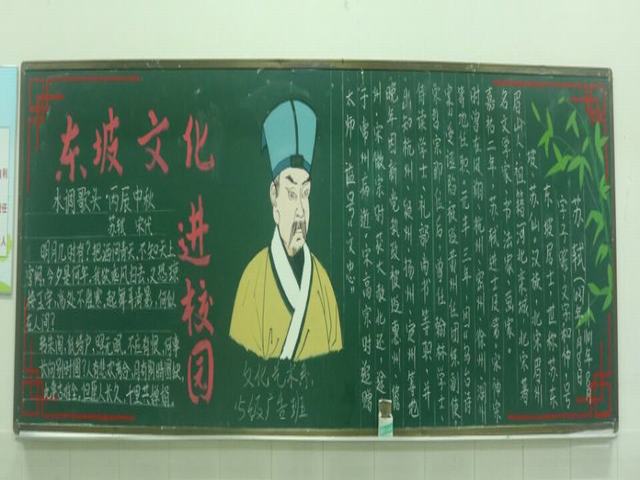 东坡文化
进校园
水调歌头·丙辰中秋
苏轼 宋代
明月几时有?把酒问青天,不知天上
宫阙,今夕是何年,我欲乘风归去,又恐琼
楼玉宇,高处不胜寒,起舞弄清影,何似
在人间?
转朱阁,低绮户,照无眠,不应有恨,何事
长向别时圆?人有悲欢离合,月有阴晴圆缺,
此事古难全,但愿人长久,千里共婵娟
文化艺术系
15级广告班
苏轼
字子瞻,又字和仲,号
东坡居士,世称苏东
坡、苏仙,汉族,北宋眉州
眉山人,祖籍河北栾城,北宋著
名文学家、书法家、画家。
嘉祐二年,苏轼进士及第,宋神宗
时曾在凤翔、杭州、密州、徐州、湖州
等地任职。元丰三年,因乌台诗
案受诬陷被贬黄州任团练副使
宋哲宗即位后,曾任翰林学士、
侍读学士、礼部尚书等职,并
出知杭州、颍州、扬州、定州等地
晚年因新党执政被贬惠州、儋
州。宋徽宗时获大赦北还,途中
于常州病逝。宋高宗时追赠
太师,谥号“文忠”。